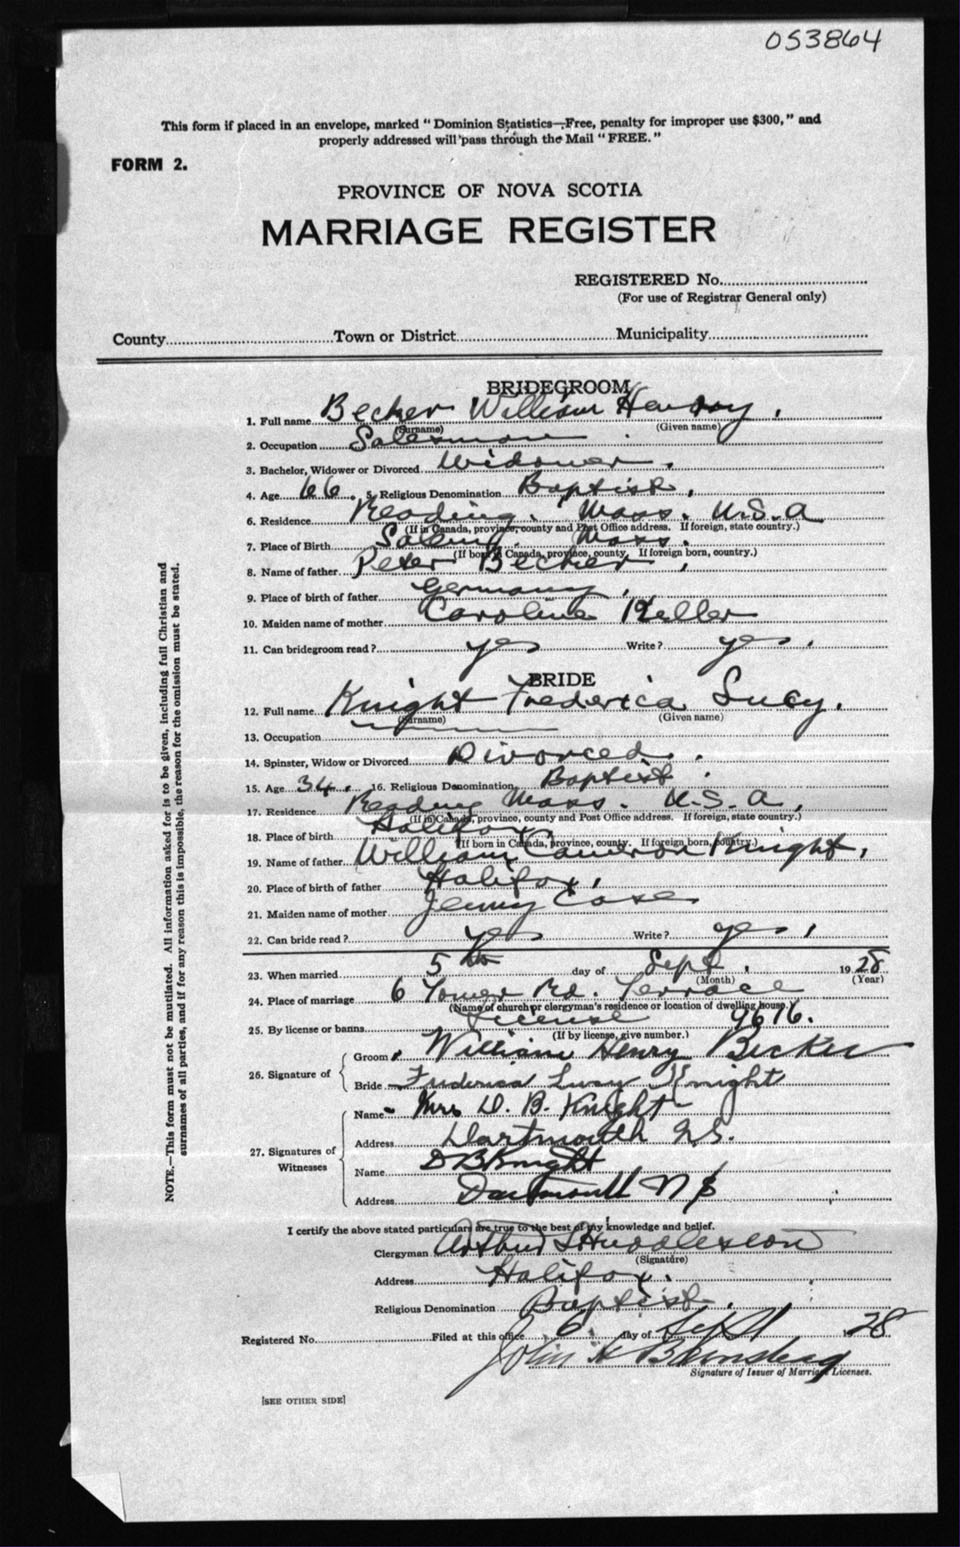 053864
This form if placed in an envelope, marked "Dominion Statistics—Free, penalty for improper use $300," and
properly addressed will pass through the Mail "FREE."
FORM 2.
PROVINCE OF NOVA SCOTIA
MARRIAGE REGISTER
REGISTERED No.
(For use of Registrar General only)
County Town or District Municipality
BRIDEGROOM
1. Full name Becker William Henry,
(Surname) (Given name)
2. Occupation Salesman
3. Bachelor, Widower or Divorced Widower.
4. Age 66. 5. Religious Denomination Baptist.
6. Residence Reading. Mass. U.S.A
(If in Canada, province, county and Post Office address. If foreign, state country.)
7. Place of Birth Salem, Mass.
(If born in Canada, province, county. If foreign born, country.)
8. Name of father Peter Becker,
9. Place of birth of father Germany,
10. Maiden name of mother Caroline Keller
11. Can bridegroom read? yes Write? yes.
BRIDE
12. Full name Knight Frederica Lucy.
(Surname) (Given name)
13. Occupation
14. Spinster, Widow or Divorced Divorced.
15. Age 34. 16. Religious Denomination Baptist.
17. Residence Reading Mass. U.S.A,
(If in Canada, province, county and Post Office address. If foreign, state country.)
18. Place of birth Halifax
(If born in Canada, province, county. If foreign born, country.)
19. Name of father William Cameron Knight,
20. Place of birth of father Halifax,
21. Maiden name of mother Jenny Case
22. Can bride read? yes Write? yes,
23. When married 5th day of Sept. 1928
(Month) (Year)
24. Place of marriage 6 Tower Rd. Terrace
(Name of church or clergyman's residence or location of dwelling house.)
25. By license or banns License 9676.
(If by license, give number.)
26. Signature of Groom William Henry Becker
Bride Frederica Lucy Knight
27. Signatures of Witnesses Name Mrs D. B. Knight
Address Dartmouth N.S.
Name D B Knight
Address Dartmouth N S
I certify the above stated particulars are true to the best of my knowledge and belief.
Clergyman Arthur Huddleston
(Signature)
Address Halifax.
Religious Denomination Baptist.
Registered No. Filed at this office 6 day of Sept 28
John
Signature of Issuer of Marriage Licenses.
[SEE OTHER SIDE]
NOTE.—This form must not be mutilated. All information asked for is to be given, including full Christian and
surnames of all parties, and if for any reason this is impossible, the reason for the omission must be stated.